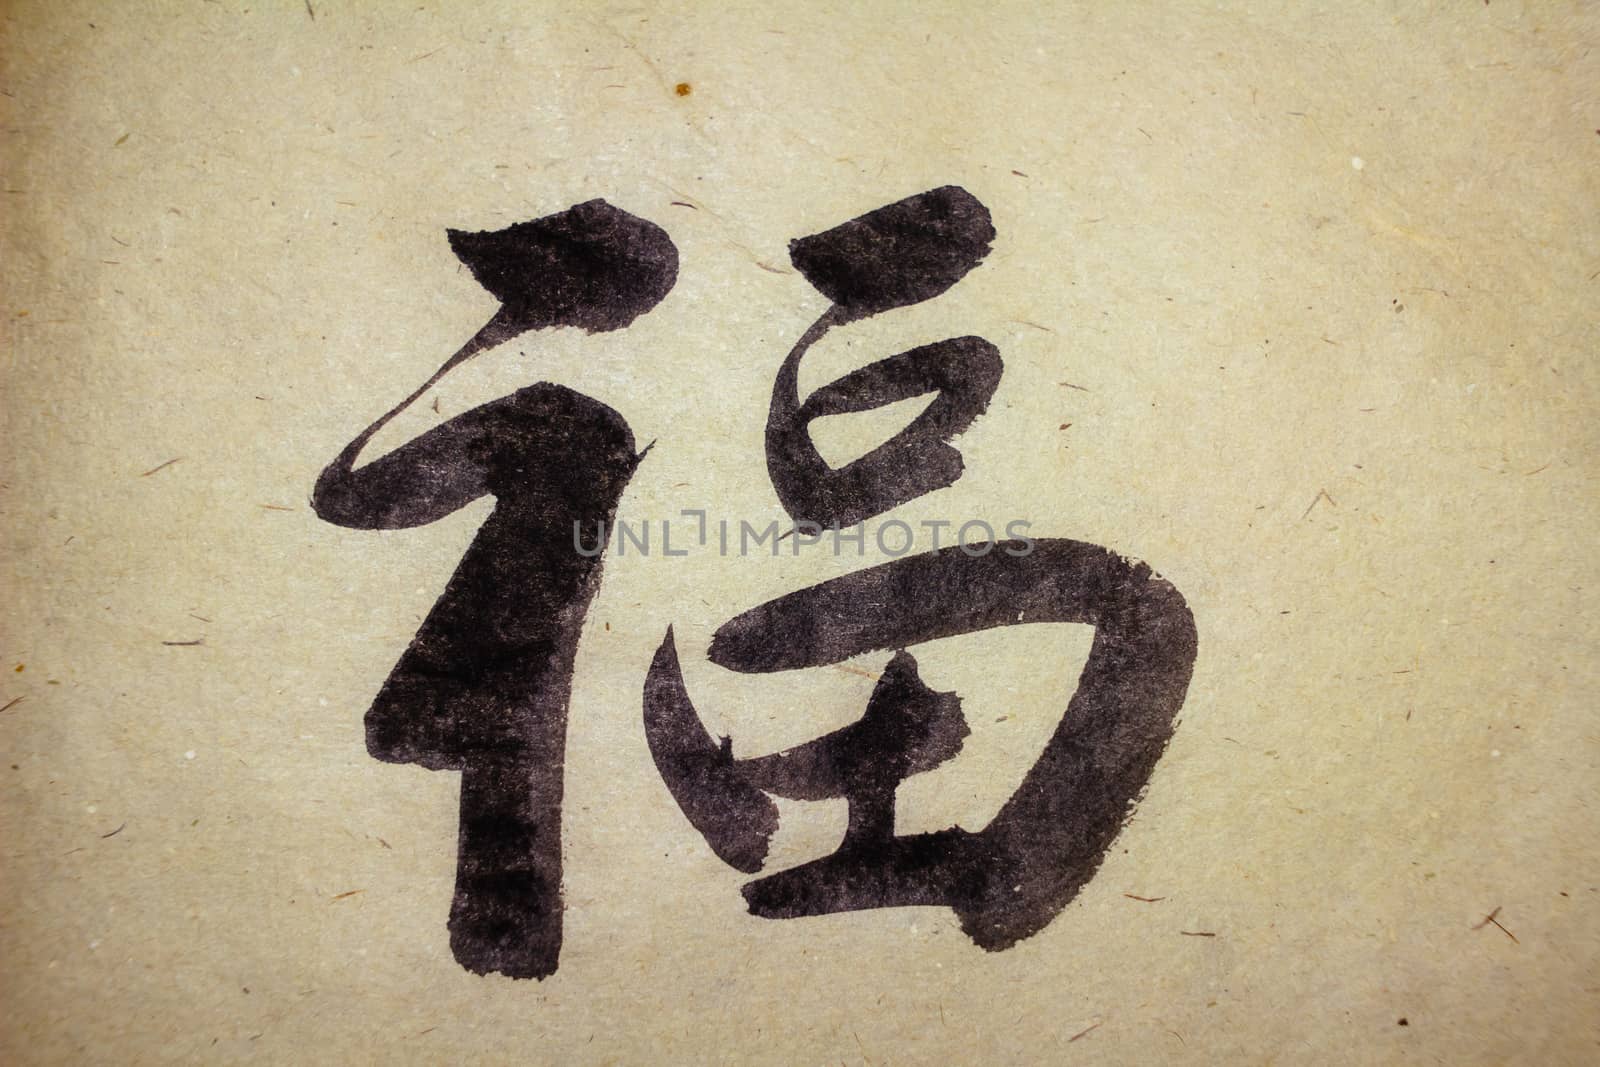 福
UNLIMPHOTOS